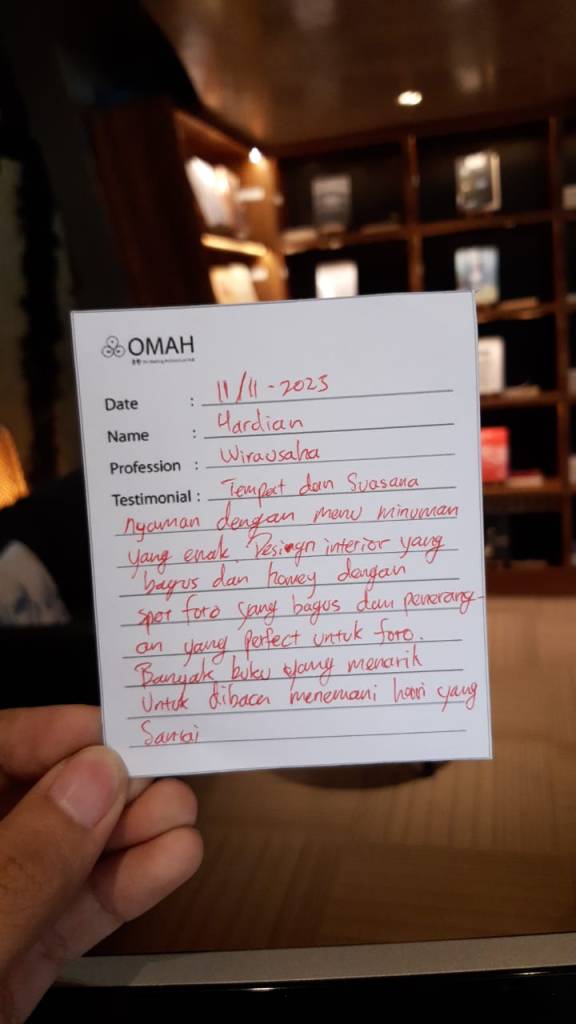 OMAH
Date : 11/11-2025
Name : Hardian
Profession : Wirausaha
Testimonial : Tempat dan Suasana
nyaman dengan menu minuman
yang enak. Design interior yang
bagus dan homey dengan
spot foto yang bagus dan penerang-
an yang perfect untuk foto.
Banyak buku yang menarik
Untuk dibaca menemani hari yang
Santai